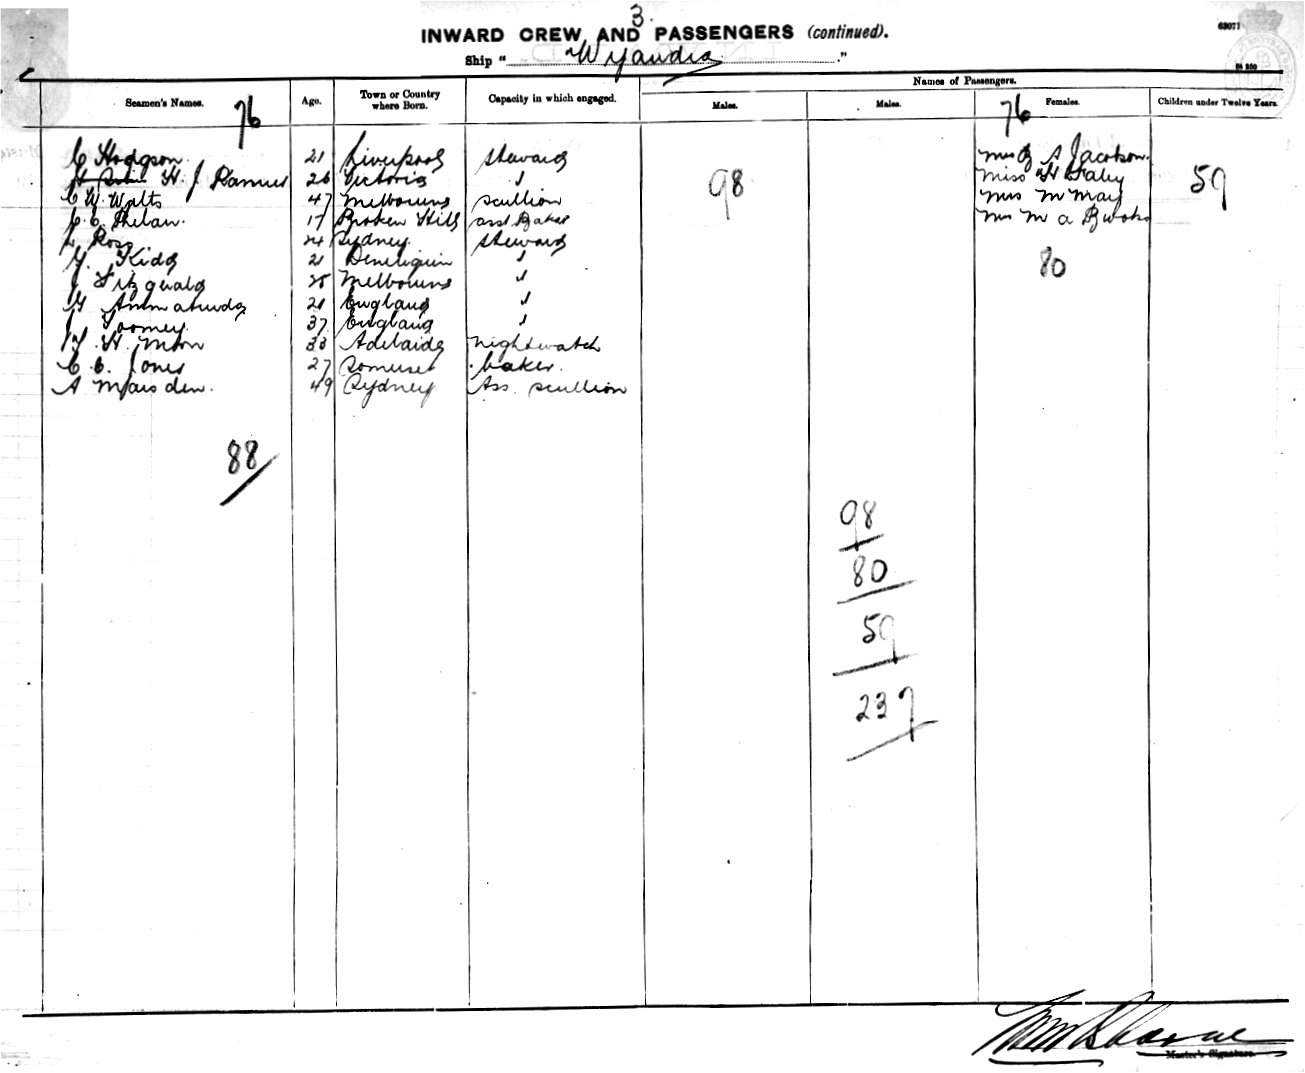 3.
INWARD CREW AND PASSENGERS (continued).
63071
Ship " Wyandra "
Names of Passengers.
Seamen's Names. Age. Town or Country where Born. Capacity in which engaged. Males. Males. Females. Children under Twelve Years.
76 76
C Hodgson. 21 Liverpool Steward A Jacobson.
H. J Ramus 26 Victoria " 98 Miss H Haley 59
C W. Watts 47 Melbourne Scullion M May
C. Phelan. 17 Broken Hill asst Baker M a
L Ross 24 Sydney. Steward
G. Kidd 21 Deniliquin " 80
J Fitzgerald 28 Melbourne "
G 21 England "
J Toomey. 37 England "
H. Moon 33 Adelaide nightwatch
C. C. Jones 27 Somerset baker.
A Marsden. 49 Sydney. Ass. Scullion
88
98
80
59
237
Master's Signature.